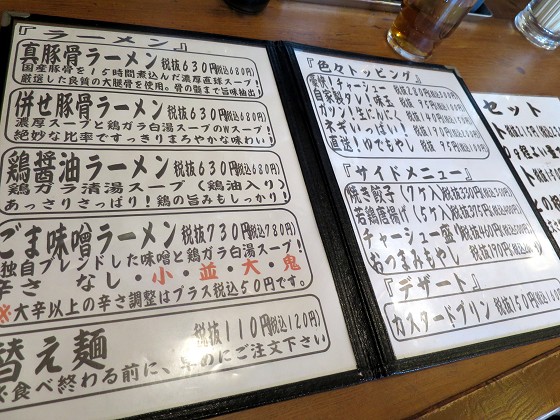 『ラーメン』
真豚骨ラーメン 税抜630円(税込680円)
国産豚骨を15時間煮込んだ濃厚直球スープ!
厳選した良質の大腿骨を使用。骨の髄まで旨味抽出!
併せ豚骨ラーメン 税抜630円(税込680円)
濃厚スープと鶏ガラ白湯スープのWスープ!
絶妙な比率ですっきりまろやかな味わい
鶏醤油ラーメン 税抜630円(税込680円)
鶏ガラ清湯スープ(鶏油入り)
あっさりさっぱり!鶏の旨みもしっかり!
ごま味噌ラーメン 税抜730円(税込780円)
独自ブレンドした味噌と鶏ガラ白湯スープ!
辛さ なし・小・並・大・鬼
※大辛以上の辛さ調整はプラス税込50円です。
替え麺 税抜110円(税込120円)
食べ終わる前に、早めにご注文下さい
『色々トッピング』
チャーシュー 税抜280円
自家製タレ!味玉 税抜95円
ガツン!生にんにく 税抜
ネギいっぱい! 税抜
直法!ゆでもやし 税抜95円
『サイドメニュー』
焼き餃子(7ケ入) 税抜
若鶏唐揚(5ケ入) 税抜
チャーシュー盛り 税抜
おつまみもやし 税抜190円
『デザート』
カスタードプリン 税抜150円
セット